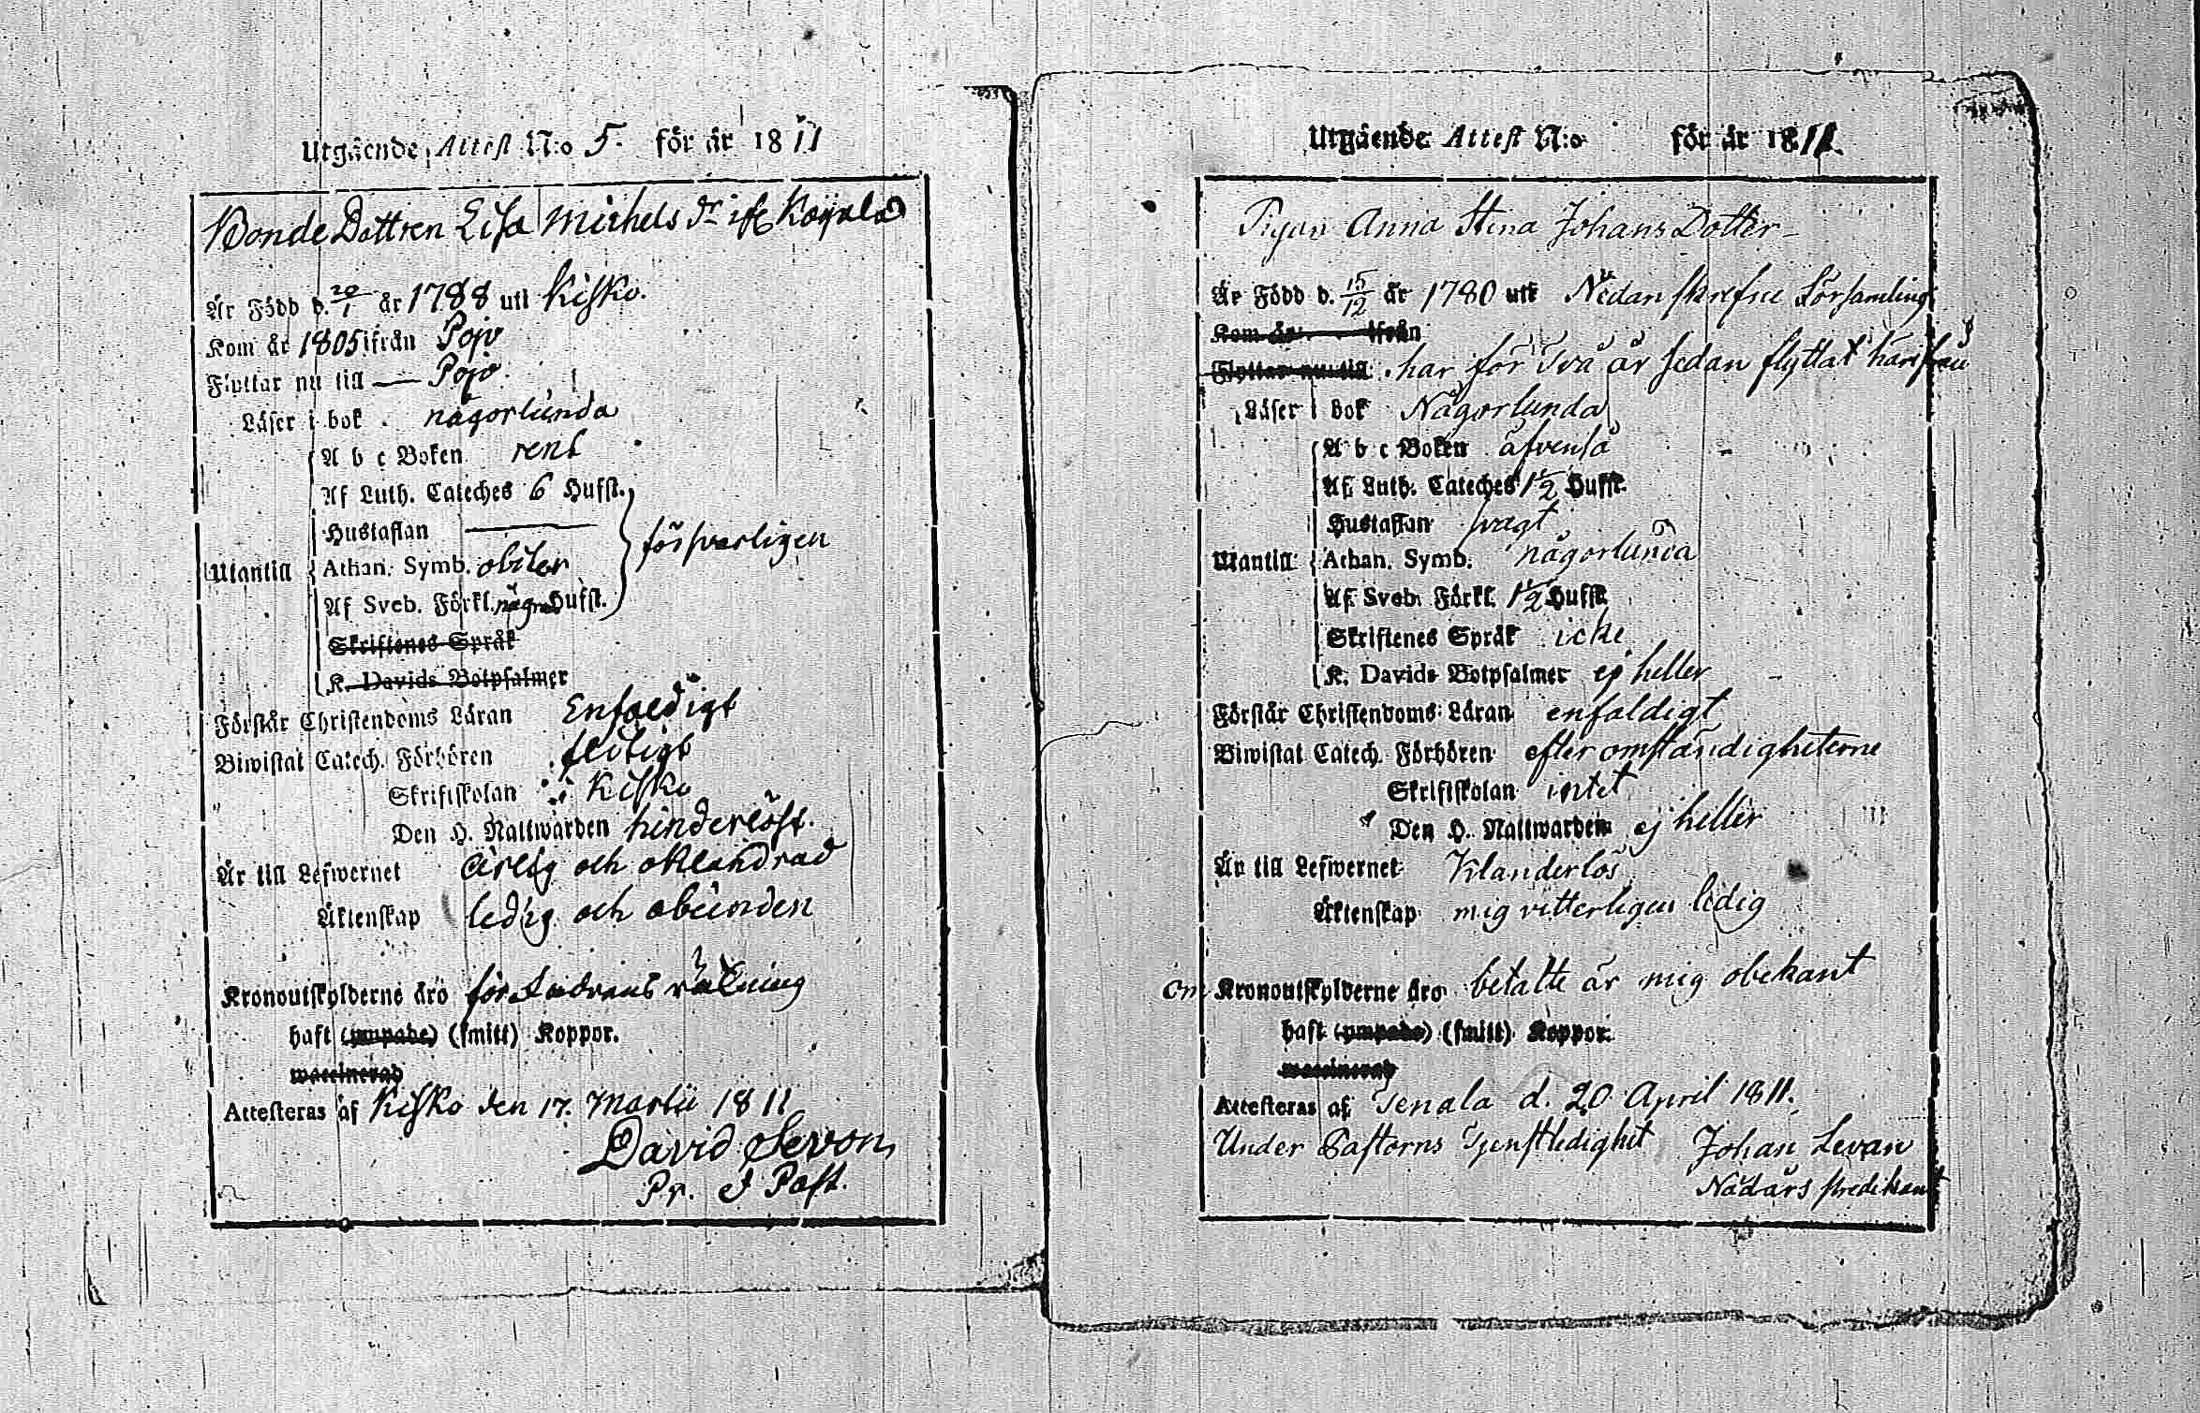 Utgående Attest N:o 5. för år 1811
Bonde Dottren Lisa Michels dr ifr Koskela
Är Född d. 20/1 år 1788 uti Kisko.
Kom år 1805 ifrån Pojo
Flyttar nu till — Pojo.
Läser i bok . någorlunda
A b c Boken rent
Af Luth. Cateches 6 Hufst.
Hustaflan
försvarligen
Utantill
Athan. Symb.
Af Sveb. Förkl. några Hufst.
Skriftenes Språk
K. Davids Botpsalmer
Förstår Christendoms Läran Enfaldigt
Biwistat Catech. Förhören flitigt
Skriftskolan i Kisko
Den H. Nattwarden hinderlöst.
Är till Lefwernet ärlig och oklandrad
Äktenskap ledig och obunden
Kronoutskylderne äro för Fadrens räkning
haft (ympade) (smitt) Koppor.
waccinerad
Attesteras af Kisko den 17. Martii 1811
David Sevon,
Pr. I Past.
Utgående Attest N:o för år 1811.
Pigan Anna Stina Johans Dotter
Är Född d. 15/12 år 1780 uti Nedanskrefne Församling
Kom år ifrån
Flyttar nu till . har för Två år sedan flyttat härifrån
Läser i bok Någorlunda
A b c Boken äfvenså
Af Luth. Cateches 1 1/2 Hufst.
Hustaflan svagt
Utantill Athan. Symb. någorlunda
Af Sveb. Förkl. 1 1/2 Hufst.
Skriftenes Språk icke
K. Davids Botpsalmer ej heller
Förstår Christendoms Läran enfaldigt
Biwistat Catech. Förhören efter omständigheterne
Skriftskolan intet
Den H. Nattwarden ej heller
Är till Lefwernet Klanderlös
Äktenskap mig vitterligen ledig
Om Kronoutskylderne äro betalte är mig obekant
haft (ympade) (smitt) Koppor.
waccinerad
Attesteras af Tenala d. 20 April 1811.
Under Pastorns Tjenstledighet Johan Levan
Nådårs predikant